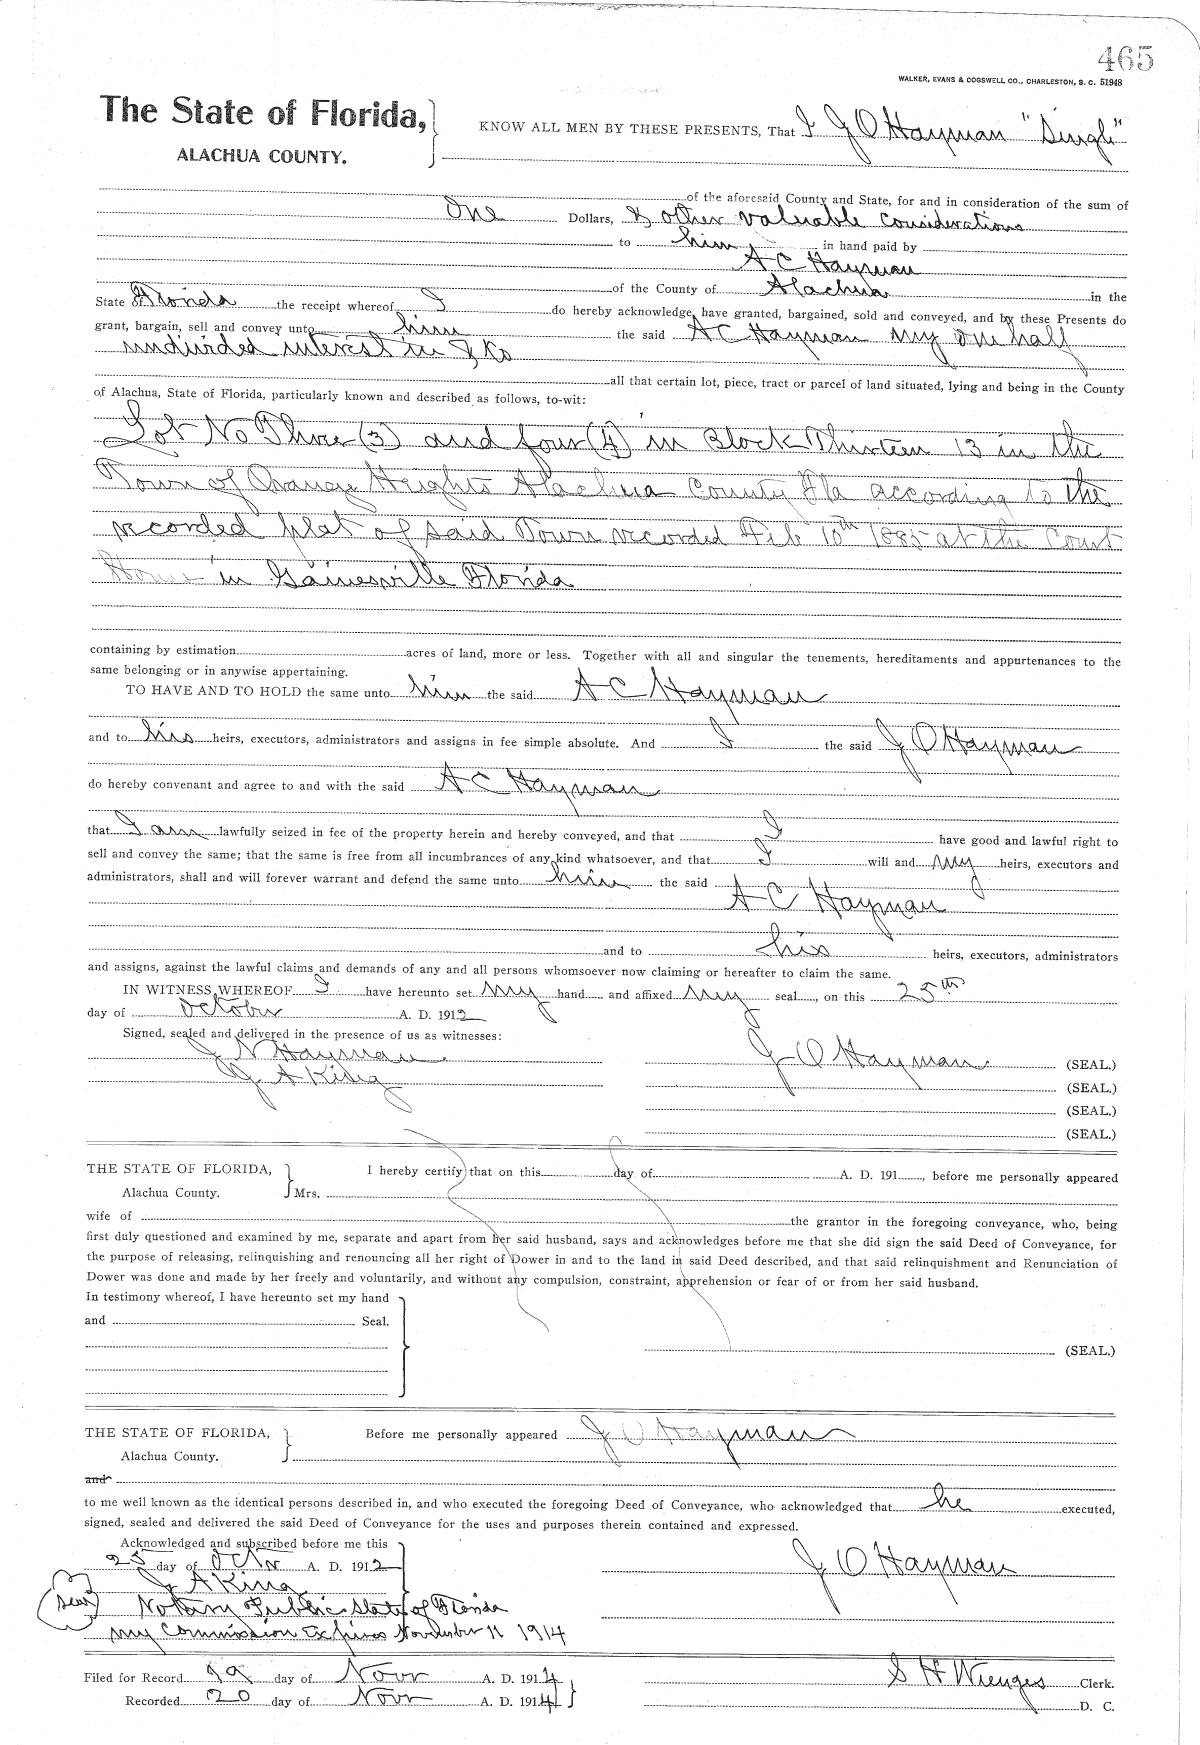 465
WALKER, EVANS & COGSWELL CO., CHARLESTON, S. C. 51948
The State of Florida,
ALACHUA COUNTY.
KNOW ALL MEN BY THESE PRESENTS, That I J O Hayman "Single"
of the aforesaid County and State, for and in consideration of the sum of
One Dollars, & other valuable considerations
to him in hand paid by
A C Hayman
of the County of Alachua in the
State of Florida the receipt whereof I do hereby acknowledge, have granted, bargained, sold and conveyed, and by these Presents do
grant, bargain, sell and convey unto him the said A C Hayman my one half
undivided interest in &
all that certain lot, piece, tract or parcel of land situated, lying and being in the County
of Alachua, State of Florida, particularly known and described as follows, to-wit:
Lot No Three (3) and four (4) in Block Thirteen 13 in the
Town of Orange Heights Alachua County Fla according to the
recorded plat of said Town recorded Feb 10th 1885 at the Court
House in Gainesville Florida
containing by estimation acres of land, more or less. Together with all and singular the tenements, hereditaments and appurtenances to the
same belonging or in anywise appertaining.
TO HAVE AND TO HOLD the same unto him the said A C Hayman
and to his heirs, executors, administrators and assigns in fee simple absolute. And I the said J O Hayman
do hereby convenant and agree to and with the said A C Hayman
that I am lawfully seized in fee of the property herein and hereby conveyed, and that I have good and lawful right to
sell and convey the same; that the same is free from all incumbrances of any kind whatsoever, and that I will and my heirs, executors and
administrators, shall and will forever warrant and defend the same unto him the said A C Hayman
and to his heirs, executors, administrators
and assigns, against the lawful claims and demands of any and all persons whomsoever now claiming or hereafter to claim the same.
IN WITNESS WHEREOF I have hereunto set my hand and affixed my seal, on this 25th
day of October A. D. 1912
Signed, sealed and delivered in the presence of us as witnesses:
J N Hayman
J A King
J O Hayman (SEAL.)
(SEAL.)
(SEAL.)
(SEAL.)
THE STATE OF FLORIDA,
Alachua County.
I hereby certify that on this day of A. D. 191, before me personally appeared
Mrs.
wife of the grantor in the foregoing conveyance, who, being
first duly questioned and examined by me, separate and apart from her said husband, says and acknowledges before me that she did sign the said Deed of Conveyance, for
the purpose of releasing, relinquishing and renouncing all her right of Dower in and to the land in said Deed described, and that said relinquishment and Renunciation of
Dower was done and made by her freely and voluntarily, and without any compulsion, constraint, apprehension or fear of or from her said husband.
In testimony whereof, I have hereunto set my hand
and Seal.
(SEAL.)
THE STATE OF FLORIDA,
Alachua County.
Before me personally appeared J O Hayman
and
to me well known as the identical persons described in, and who executed the foregoing Deed of Conveyance, who acknowledged that he executed,
signed, sealed and delivered the said Deed of Conveyance for the uses and purposes therein contained and expressed.
Acknowledged and subscribed before me this
25 day of Octr A. D. 1912
J O Hayman
J A King
Seal
Notary Public State of Florida
my Commission Expires November 11 1914
Filed for Record 19 day of Novr A. D. 1914
S H Wienges Clerk.
Recorded 20 day of Novr A. D. 1914
D. C.